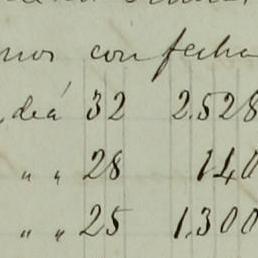 mos con fecha
de á 32 2.528
" " 28 140
" " 25 1.300